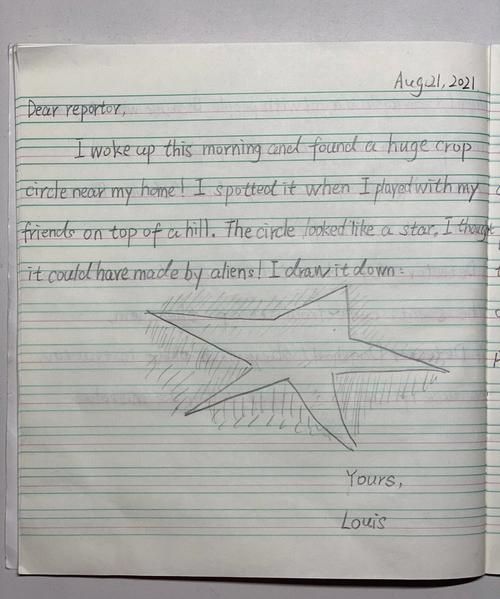 Aug.21, 2021.
Dear reportor,
I woke up this morning and found a huge crop
circle near my home! I spotted it when I played with my
friends on top of a hill. The circle looked like a star. I thought
it could have made by aliens! I draw it down:
Yours,
Louis